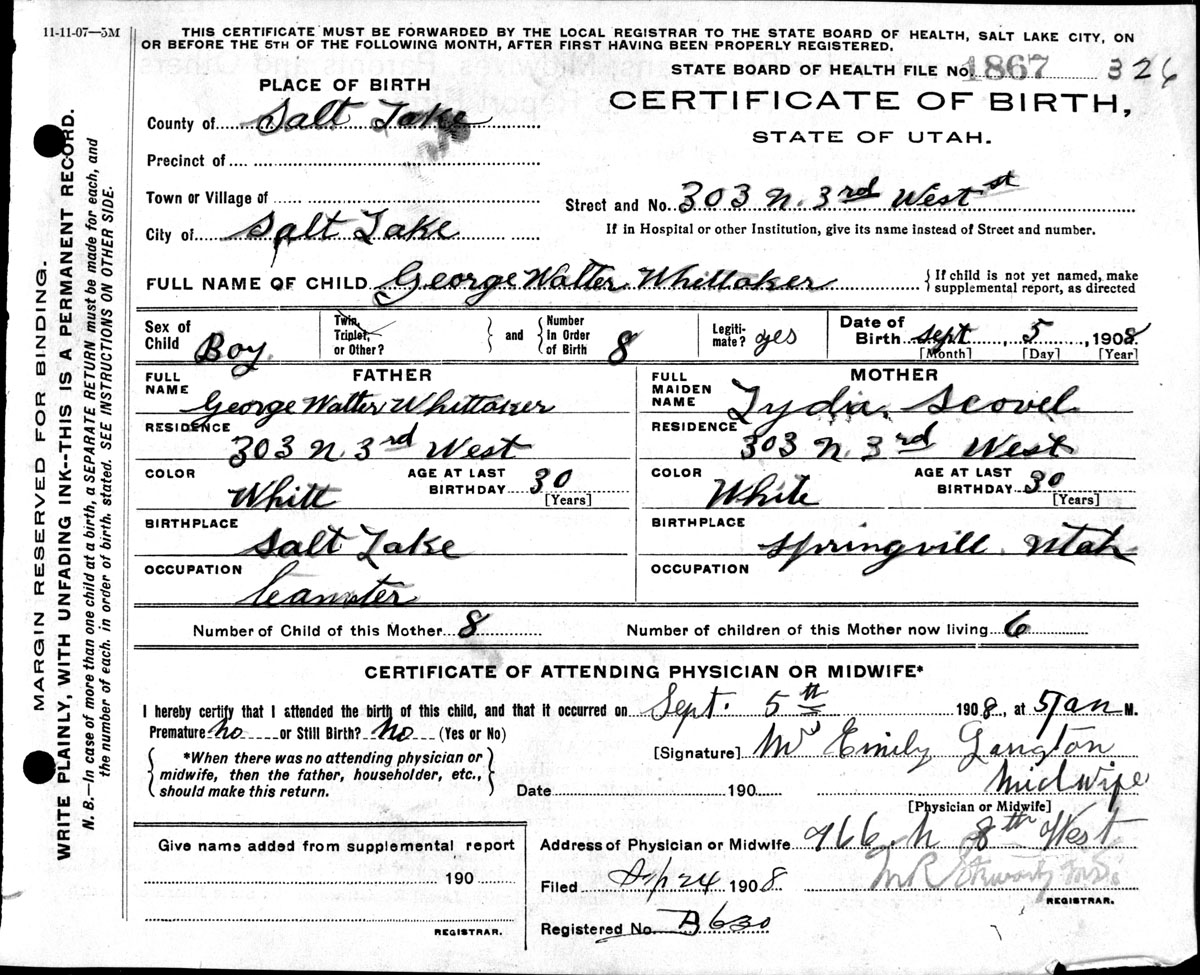 11-11-07—5M
THIS CERTIFICATE MUST BE FORWARDED BY THE LOCAL REGISTRAR TO THE STATE BOARD OF HEALTH, SALT LAKE CITY, ON
OR BEFORE THE 5TH OF THE FOLLOWING MONTH, AFTER FIRST HAVING BEEN PROPERLY REGISTERED.
STATE BOARD OF HEALTH FILE No. 1867 326
CERTIFICATE OF BIRTH,
STATE OF UTAH.
PLACE OF BIRTH
County of Salt Lake
Precinct of
Town or Village of
City of Salt Lake
Street and No. 303 N. 3rd West st
If in Hospital or other Institution, give its name instead of Street and number.
FULL NAME OF CHILD George Walter Whittaker
{ If child is not yet named, make
supplemental report, as directed
Sex of
Child Boy
Twin,
Triplet,
or Other?
} and { Number
In Order
of Birth 8
Legiti-
mate? yes
Date of
Birth Sept, 5, 1908
[Month] [Day] [Year]
FATHER
FULL
NAME George Walter Whittaker
RESIDENCE
303 N. 3rd West
COLOR
Whitt
AGE AT LAST
BIRTHDAY 30
[Years]
BIRTHPLACE
Salt Lake
OCCUPATION
MOTHER
FULL
MAIDEN
NAME Lydia Scovel
RESIDENCE
303 N. 3rd West
COLOR
White
AGE AT LAST
BIRTHDAY 30
[Years]
BIRTHPLACE
Springvill Utah
OCCUPATION
Number of Child of this Mother 8
Number of children of this Mother now living 6
CERTIFICATE OF ATTENDING PHYSICIAN OR MIDWIFE*
I hereby certify that I attended the birth of this child, and that it occurred on Sept. 5th 1908, at 5 am M.
Premature No or Still Birth? No (Yes or No)
{ *When there was no attending physician or
midwife, then the father, householder, etc.,
should make this return. }
[Signature] Mrs Emily Langton
Date 190 Midwife
[Physician or Midwife]
Address of Physician or Midwife 766 N 8th West
Filed Sep 24 1908
REGISTRAR.
Registered No. A630
Give name added from supplemental report
190
REGISTRAR.
MARGIN RESERVED FOR BINDING.
WRITE PLAINLY, WITH UNFADING INK--THIS IS A PERMANENT RECORD.
N. B.—In case of more than one child at a birth, a SEPARATE RETURN must be made for each, and
the number of each, in order of birth, stated. SEE INSTRUCTIONS ON OTHER SIDE.